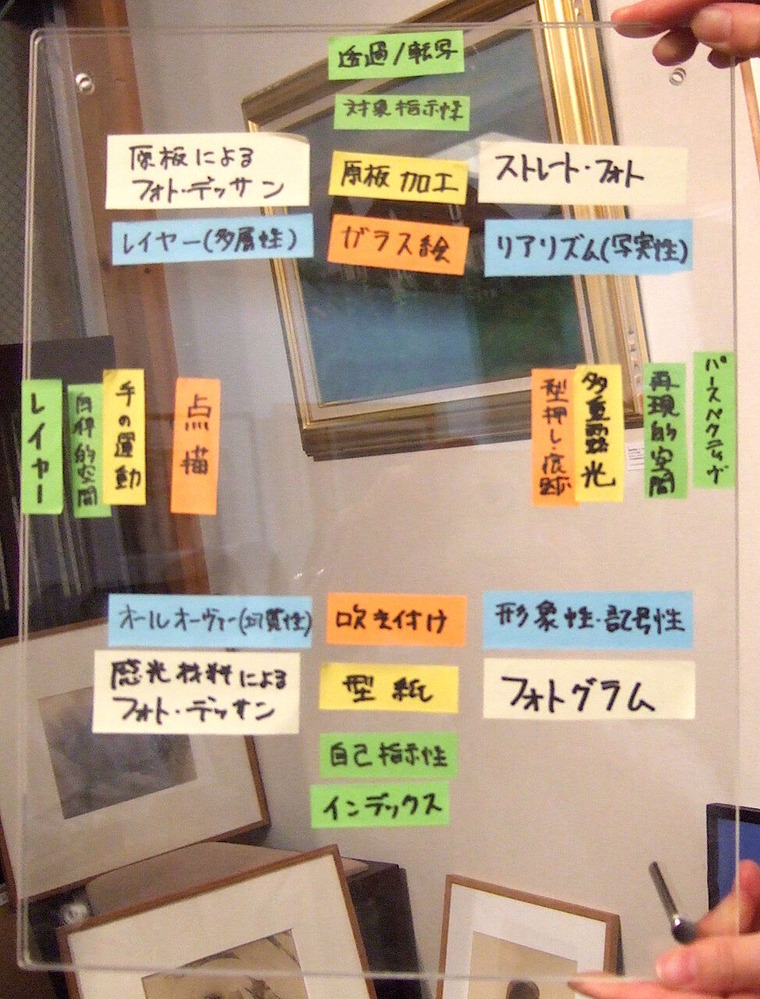 透過/転写
対象指示性
原板による
フォト・デッサン
原板加工
ストレート・フォト
レイヤー(多層性)
ガラス絵
リアリズム(写実性)
レイヤー
自律的空間
手の運動
点描
型押し・痕跡
多重露光
再現的空間
パースペクティヴ
オールオーヴァー(均質性)
吹き付け
形象性・記号性
感光材料による
フォト・デッサン
型紙
フォトグラム
自己指示性
インデックス